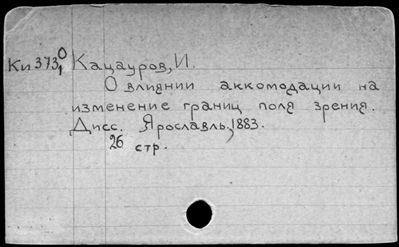 Ки 373 0/1 Кацауров, И.
О влиянии аккомодации на
изменение границ поля зрения.
Дисс. Ярославль, 1883.
26 стр.